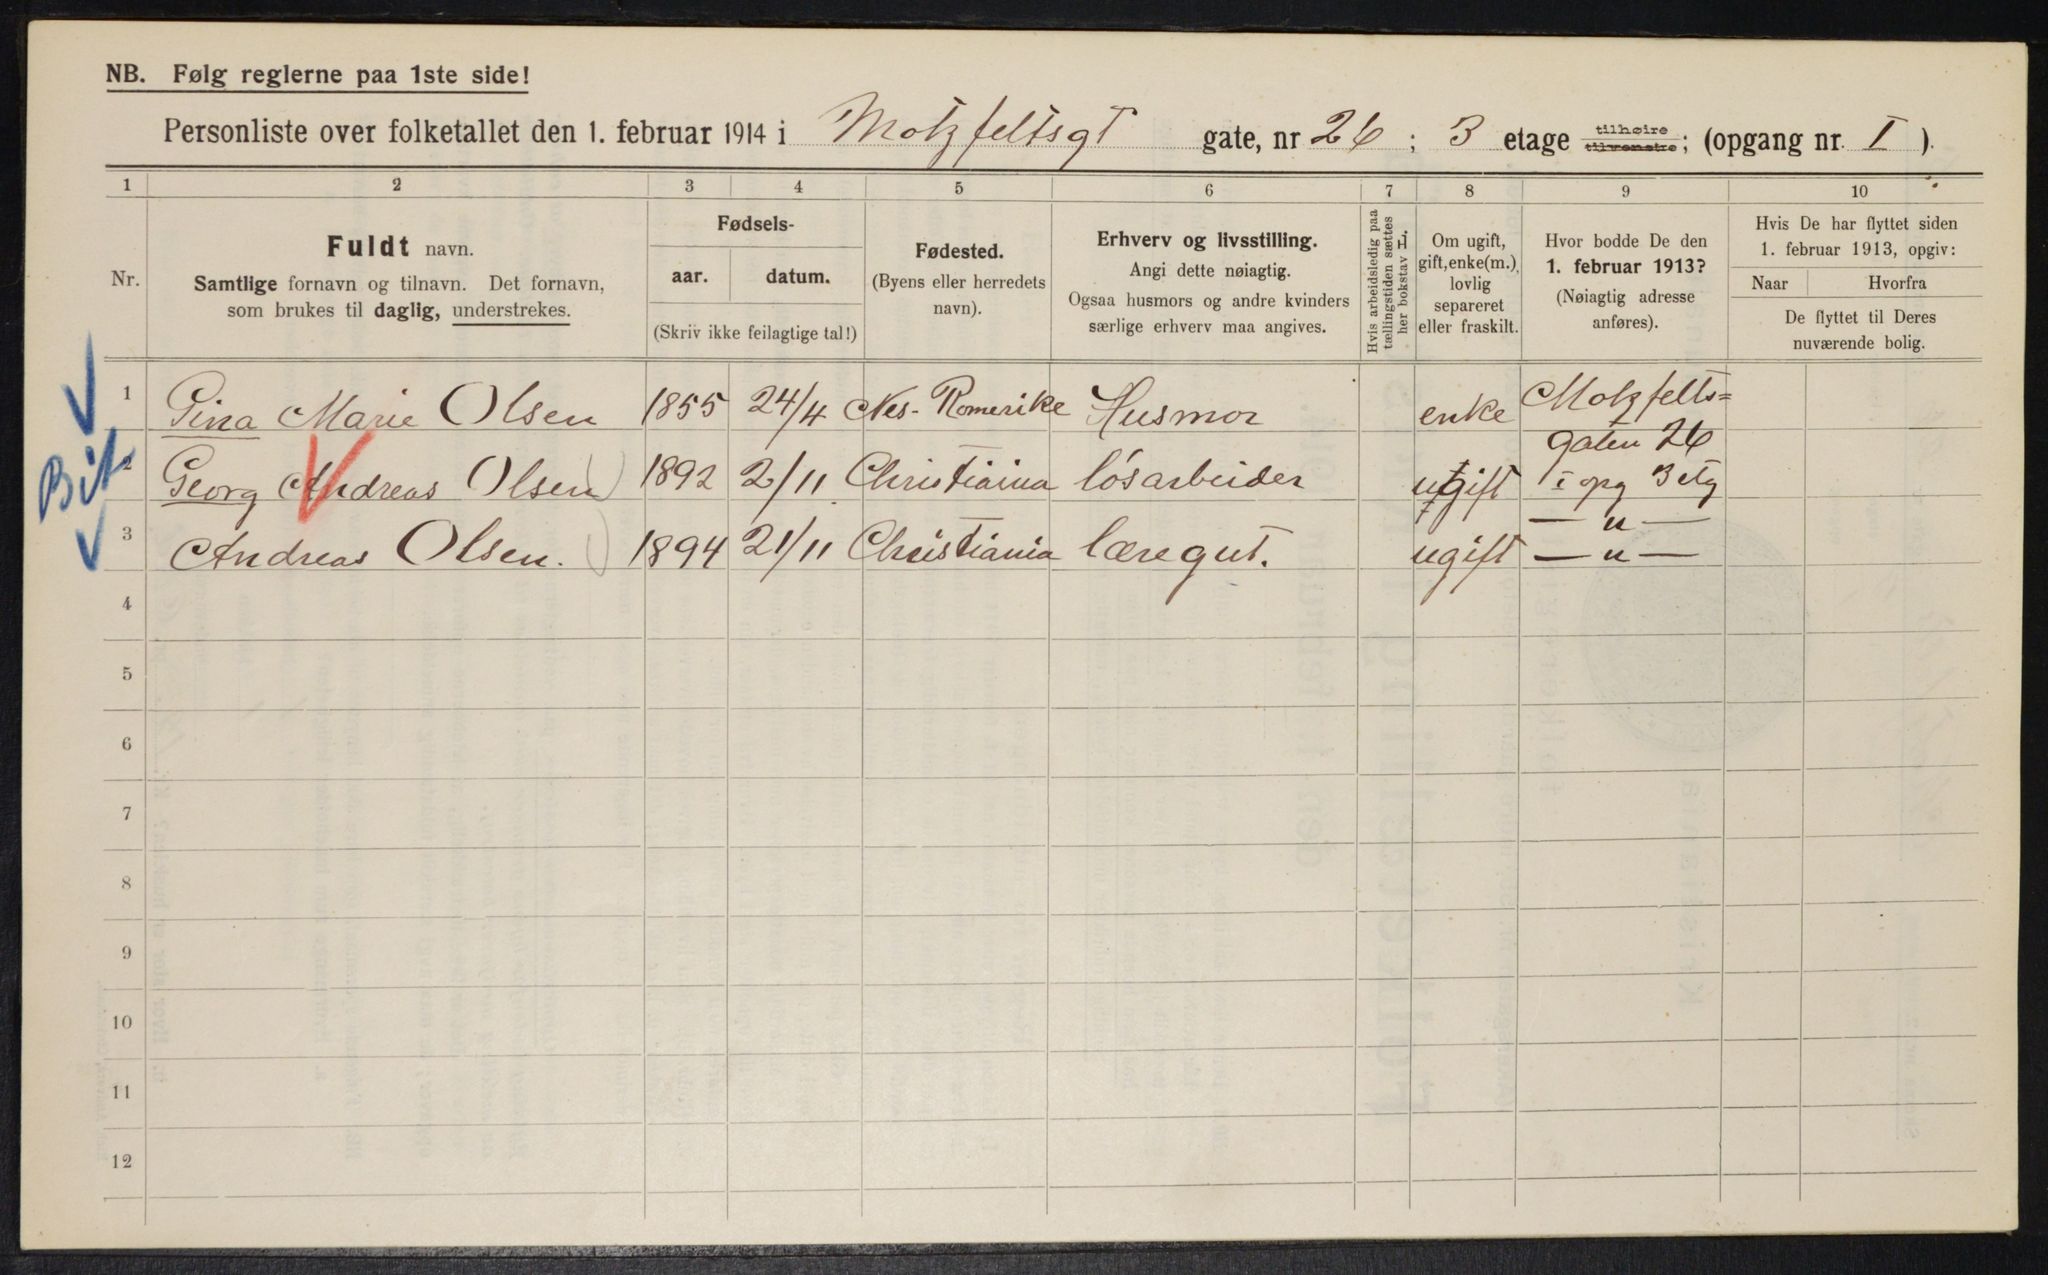 NB. Følg reglerne paa 1ste side!
Personliste over folketallet den 1. februar 1914 i Motzfeltsgt gate, nr 26 ; 3 etage tilhøire tilvenstre; (opgang nr. I ).
1 2 3 4 5 6 7 8 9 10
Nr.
Fuldt navn.
Samtlige fornavn og tilnavn. Det fornavn,
som brukes til daglig, understrekes.
Fødsels-
aar. datum.
(Skriv ikke feilagtige tal!)
Fødested.
(Byens eller herredets
navn).
Erhverv og livsstilling.
Angi dette nøiagtig.
Ogsaa husmors og andre kvinders
særlige erhverv maa angives.
Hvis arbeidsledig paa
tællingstiden sættes
her bokstav L.
Om ugift,
gift, enke(m.),
lovlig
separeret
eller fraskilt.
Hvor bodde De den
1. februar 1913?
(Nøiagtig adresse
anføres).
Hvis De har flyttet siden
1. februar 1913, opgiv:
Naar Hvorfra
De flyttet til Deres
nuværende bolig.
1 Gina Marie Olsen 1855 24/4 Nes-Romerike Husmor enke Motzfelts=
gaten 26
2 Georg Andreas Olsen 1892 2/11 Christiania løsarbeider ugift I opg 3 etg
— " —
3 Andreas Olsen. 1894 21/11 Christiania læregut. ugift — " —
4
5
6
7
8
9
10
11
12